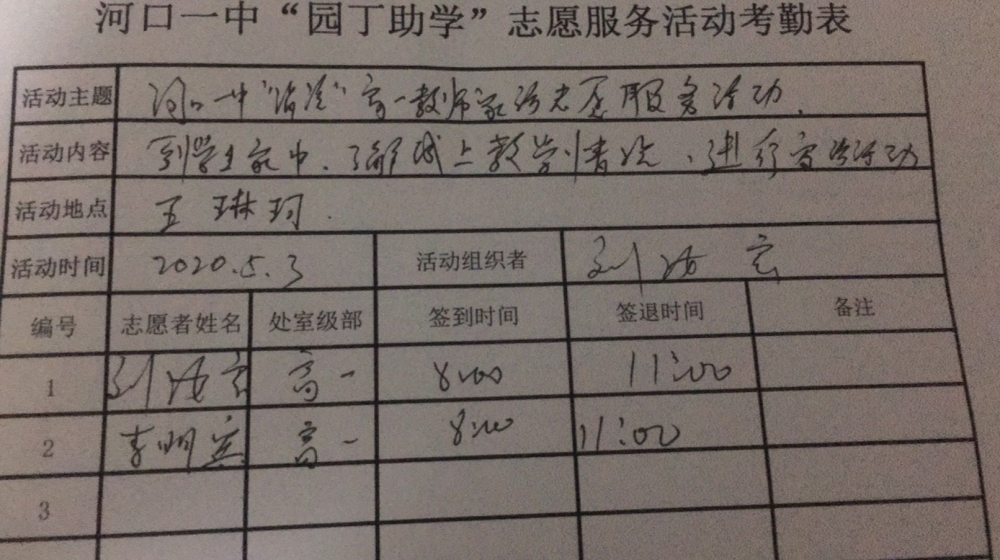 河口一中“园丁助学”志愿服务活动考勤表
活动主题 河口一中" "高一教师家访志愿服务活动.
活动内容 到学生家中、了解线上教学情况、进行家访活动
活动地点 王琳珂.
活动时间 2020.5.3 活动组织者 刘海
编号 志愿者姓名 处室级部 签到时间 签退时间 备注
1 刘海 高一 8:00 11:00
2 李明 高一 8:00 11:00
3